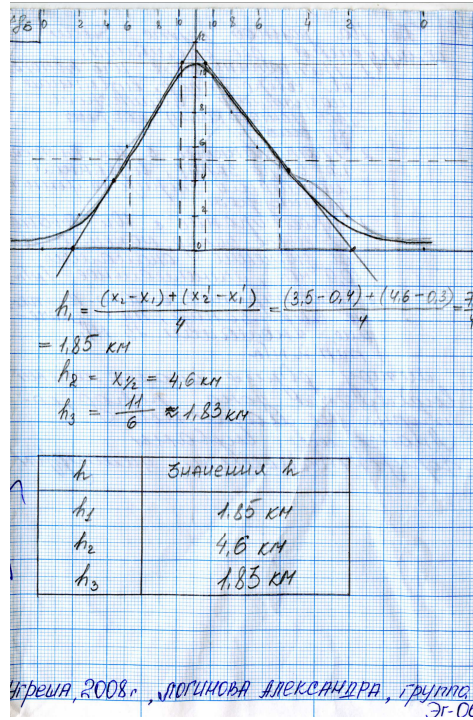 h₁ = (x₂-x₁)+(x₂'-x₁') / 4 = (3,5-0,4)+(4,6-0,3) / 4 =
= 1,85 км
h₂ = x½ = 4,6 км
h₃ = 11/6 ≈ 1,83 км
h Значения h
h₁ 1,85 км
h₂ 4,6 км
h₃ 1,83 км
Угреша, 2008г, ЛОГИНОВА АЛЕКСАНДРА, группа